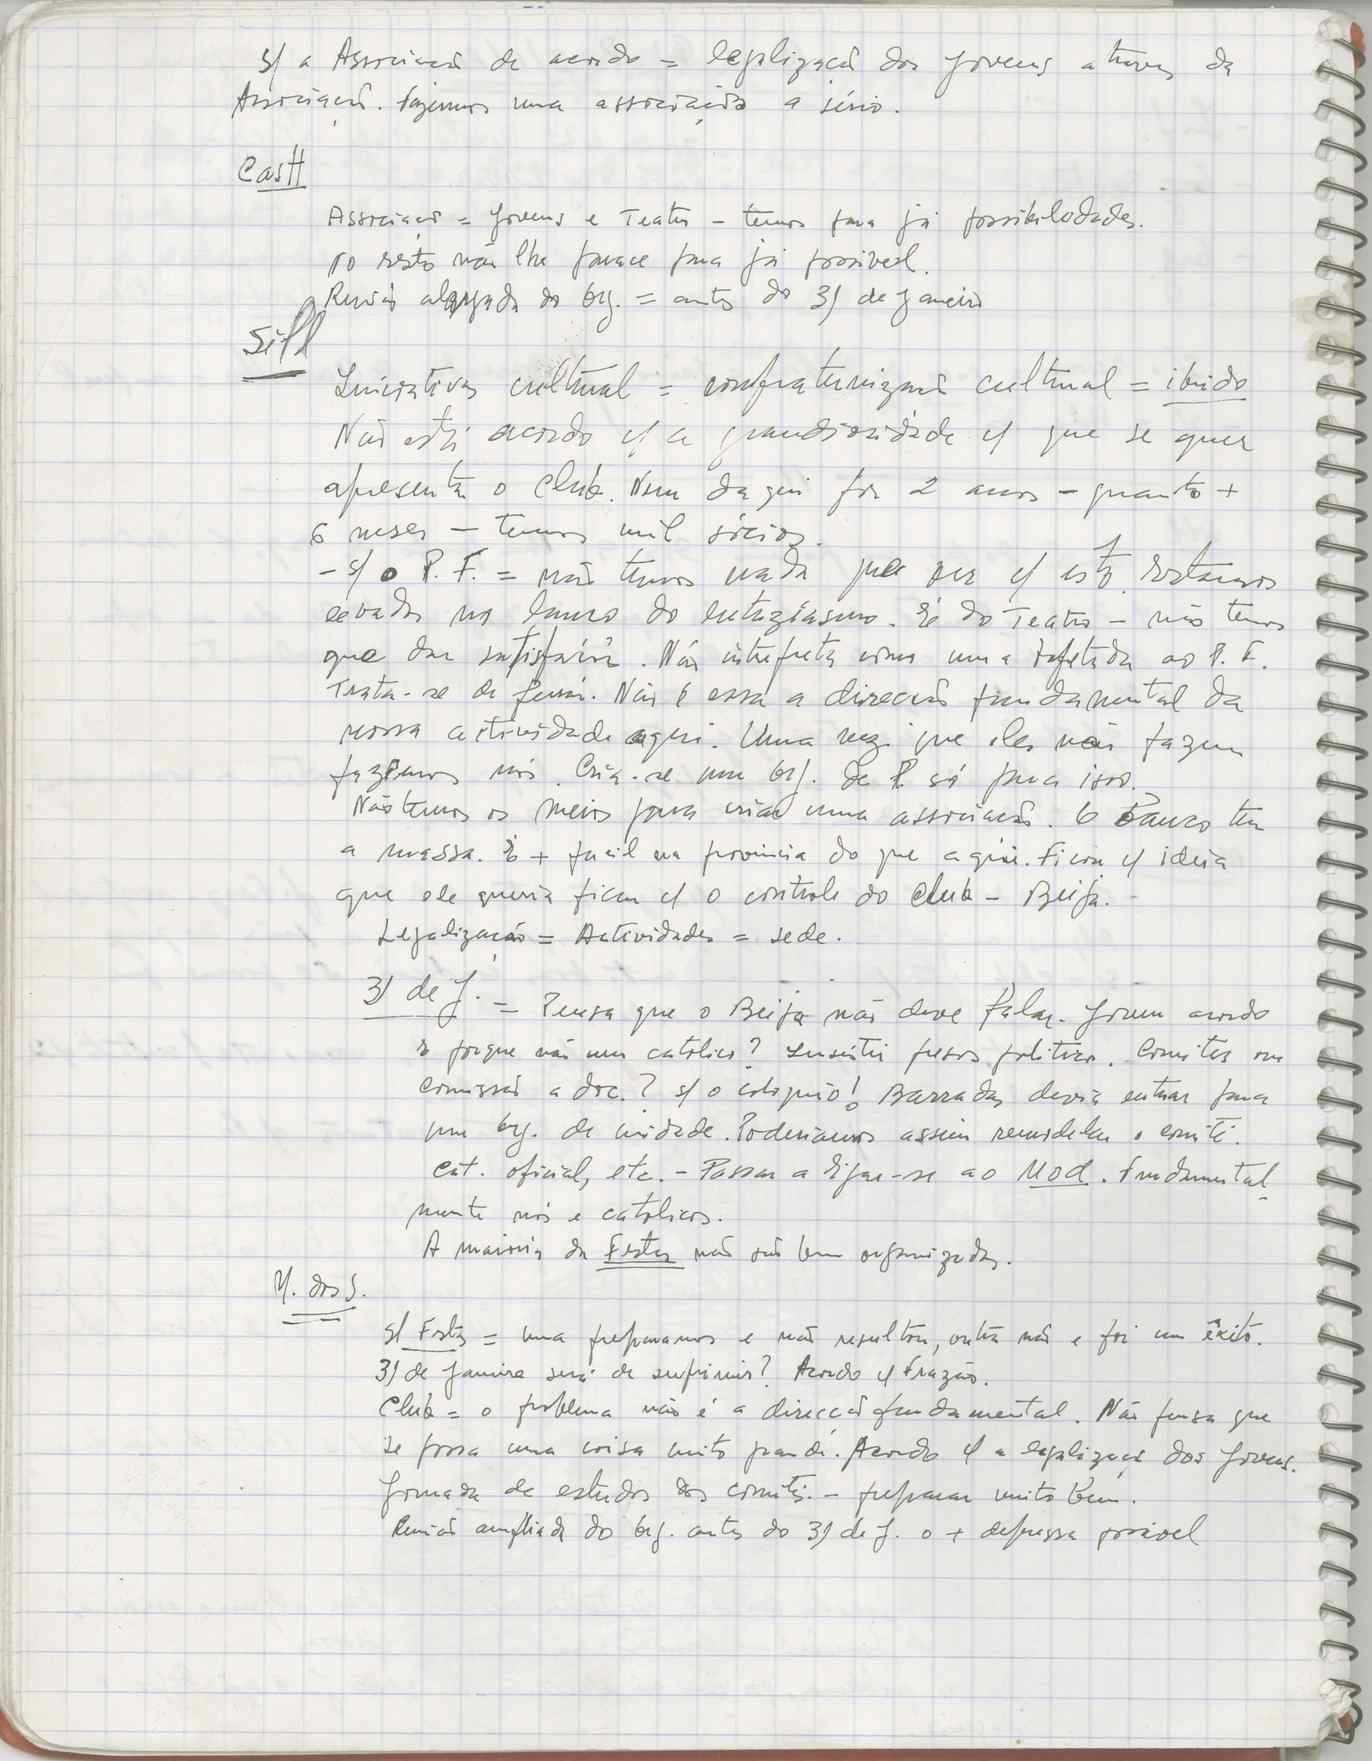 s/ a Associação de acordo = legalização dos jovens atraves da
Associação. Fazermos uma associação a sério.
Cast
Associação = jovens e Teatro - temos para já possibilidades.
no resto não lhe parece para já possivel.
Reunião alargada do org. = antes do 31 de janeiro
Sill
Iniciativas cultural = confraternização cultural =
Não está acordo c/ a grandiosidade c/ que se quer
apresentar o Club. Nem daqui por 2 anos - quanto +
6 meses - temos mil sócios.
- s/ o P. F. = não temos nada que ver c/ isto. Estamos
levados no do entuziasmo. É do Teatro - não temos
que dar satisfação. Não interpreta como uma ao P. F.
Trata-se de . Não é essa a direcção fundamental da
nossa actividade aqui. Uma vez que eles não fazem
fazemos nós. Cria-se um org. de P. só para isso.
Não temos os meios para criar uma associação. O Banco tem
a massa. É + facil na provincia do que aqui. Ficou c/ ideia
que ele queria ficar c/ o controle do Club - Beija.
Legalização = Actividades = sede.
31 de J. = Pensa que o Beija não deve falar. Jovem acordo
e porque não um católico? Insistir presos politicos. Comités ou
comissão a doc.? s/ o colóquio! Barradas devia entrar para
um org. de unidade. Poderiamos assim remodelar o comité.
Cat. oficial, etc. - Passar a ligar-se ao Mod. Fundamental-
mente nós e católicos.
A maioria da Festas não são bem organizadas.
M. dos S.
s/ Festas = uma preparamos e não resultou, outra não e foi um êxito.
31 de Janeiro será de suprimir? Acordo c/ Frazão.
Club = o problema não é a direcção fundamental. Não pensa que
se possa uma coisa muito grande. Acordo c/ a legalização dos jovens.
Jornada de estudos dos comités. - preparar muito bem.
Reunião ampliada do org. antes do 31 de J. o + depressa possivel